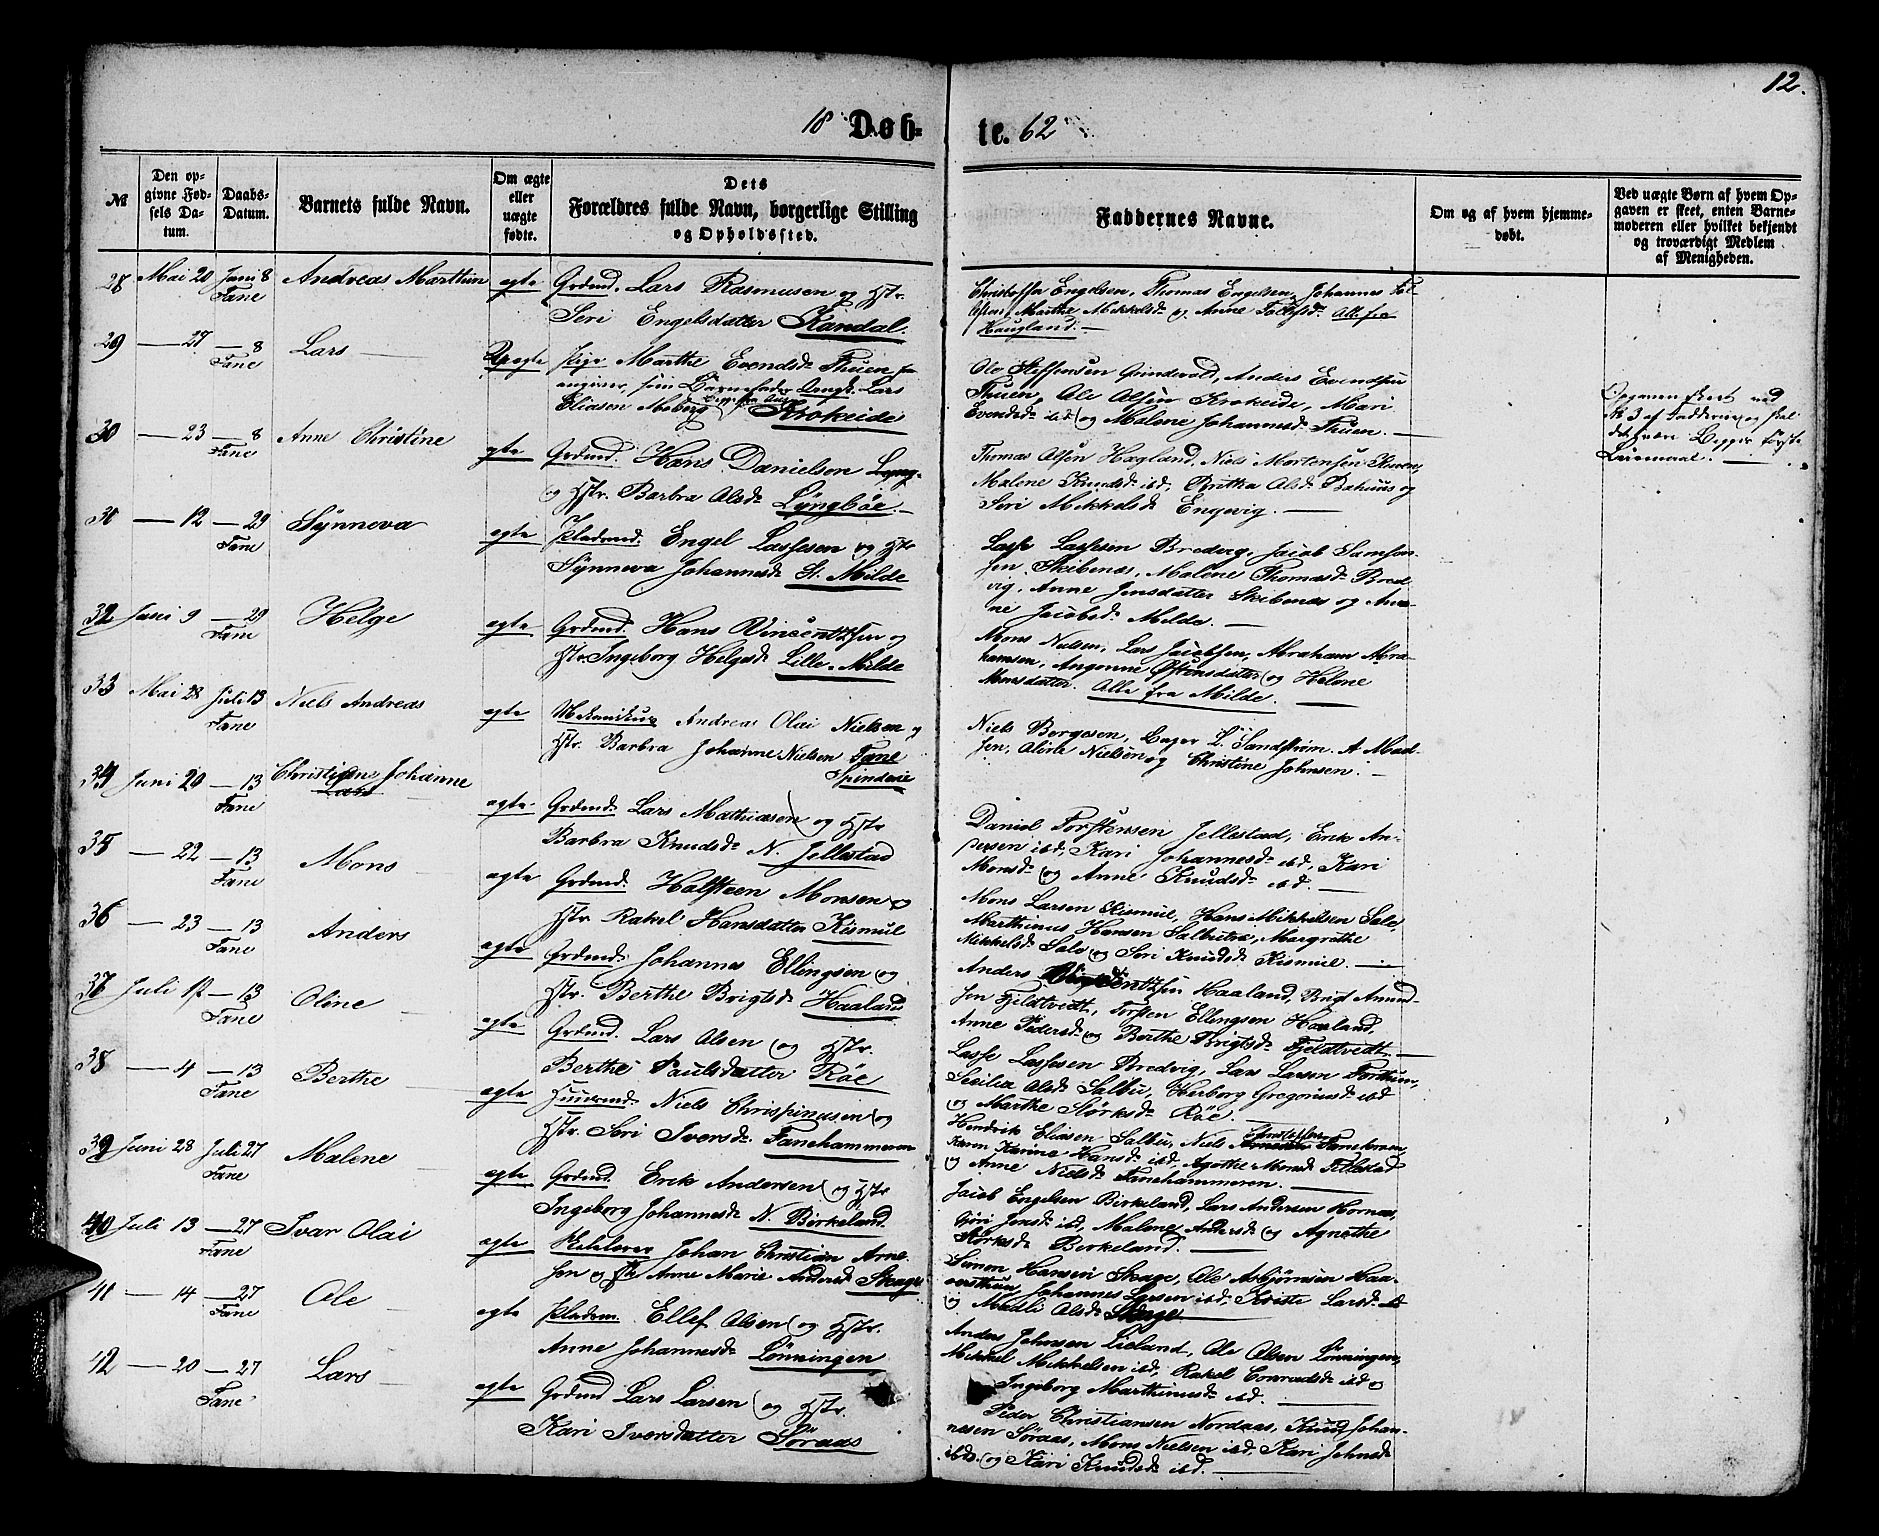 12.
18 Døb-
te. 62
№
Den op-
givne Fød-
sels Da-
tum.
Daabs-
Datum.
Barnets fulde Navn.
Om ægte
eller
uægte
fødte.
Dets
Forældres fulde Navn, borgerlige Stilling
og Opholdssted.
Faddernes Navne.
Om og af hvem hjemme-
døbt.
Ved uægte Børn af hvem Op-
gaven er skeet, enten Barne-
moderen eller hvilket bekjendt
og troværdigt Medlem
af Menigheden.
28 Mai 20 Juni 8 Andreas Marthin ægte Grdmd. Lars Rasmusen og Hstr.
Fane
Seri Engelsdatter Kandal.
Engelsen, Thomas Engelsen, Johannes
Marthe Mikkelsd. og Anne Alle fra
Haugland.
29 — 27 — 8 Lars
Fane
Uægte Pige Marthe Evendsd. Thuen
angiver, som Barnefader Lars
Eliasen Moberg Krokeide
Ole Steffensen Grindevold, Anders Evendsen
Thuen, Ole Olsen Krokeide, Mari
Evendsd. ibd. og Malene Johannesd. Thuen.
Opgaven skeet ved
№ 3 af Fadderne og skal
første
Leiermaal.
30 — 23 — 8 Anne Christine
Fane
ægte Grdmd. Hans Danielsen
og Hstr. Barbra Olsd. Lyngbøe
Thomas Olsen Hagland, Niels Mortensen
Malene Knudsd. ibd, Britha Olsd. og
Seri Mikkelsd. Engevig.
31 — 12 — 29 Synneva
Fane
ægte Pladsmd. Engel Lassesen og Hstr.
Synneva Johannesd. St. Milde
Lasse Lassesen Bredvig, Jacob Samson-
sen Skibenæs, Malene Thomasd. Bred-
vig, Anne Jensdatter Skibenæs og An-
ne Jacobsd. Milde.
32 Juni 9 — 29 Helge
Fane
ægte Grdmd. Hans Vincentzen og
Hstr. Ingeborg Helgesd. Lille Milde
Mons Nielsen, Lars Jacobsen, Abraham Abra-
hamsen, Angonne Østensdatter og Helene
Monsdatter. Alle fra Milde.
33 Mai 28 Juli 13 Niels Andreas
Fane
ægte Mekanikus Andreas Olai Nielsen og
Hstr. Barbra Johanne Nielsen Fane
Spinderie
Niels Børgesen, L. Sandstrøm. A. Mad-
sen, Nielsen og Christine Johnsen.
34 Juni 20 — 13 Christiane Johanne
Fane Lars
ægte Grdmd. Lars Mathiasen og Hstr
Barbra Knudsd. N. Jellestad
Daniel Torstensen Jellestad, Erik An-
dersen ibd, Kari Johannesd. ibd, Kari
Monsd. og Anne Knudsd. ibd.
35 — 22 — 13 Mons
Fane
ægte Grdmd. Halsteen Monsen og
Hstr. Rakel Hansdatter Kismul
Mons Larsen Kismul, Hans Mikkelsen Sale,
Marthinus Hansen Salbutræ, Margrethe
Mikkelsd. Sale og Seri Knudsd. Kismul.
36 — 23 — 13 Anders
Fane
ægte Grdmd. Johannes Ellingsen og
Hstr. Berthe Brigtsd. Haaland
Anders Haaland, Brigt Amund-
sen Fjeldtvedt, Torsten Ellingsen Haaland,
Anne Pedersd. og Berthe Brigtsd. Fjeldtvedt.
37 Juli 12 — 13 Oline
Fane
ægte Grdmd. Lars Olsen og Hstr.
Berthe Paulsdatter Røe
Lasse Lassesen Bredvig, Lars Larsen
Sicilia Olsd. Salbu, Herborg Gregoriusd. ibd
og Marthe Størksd. Røe
38 — 4 — 13 Berthe
Fane
ægte Huusmd. Niels Chrispinusen og
Hstr. Seri Iversd. Fanehammeren
Hendrik Eliasen Salbu, Niels
Karen Karine Hansd. ibd, Agathe Monsd.
og Anne Nielsd. Fanehammeren.
39 Juni 28 Juli 27 Malene
Fane
ægte Grdmd. Erik Andersen og Hstr
Ingeborg Johannesd. N. Birkeland
Jacob Engelsen Birkeland, Lars Andersen Hornæs,
Jensd. ibd, Malene Andersd. og Agnethe
Størksd. Birkeland.
40 Juli 13 — 27 Ivar Olai
Fane
ægte Johan Christian Arne-
sen og Hstr Anne Marie Andersd. Skage
Simon Hansen Skage, Ole Asbjørnsen Haa-
Johannes Larsen ibd, Kristi Larsd. ibd
og Madli Olsd. Skage
41 — 14 — 27 Ole
Fane
ægte Pladsm. Ellef Olsen og Hstr.
Anne Johannesd. Lønningen
Anders Johnsen Lieland, Ole Olsen Lønningen,
Mikkel Mikkelsen ibd, Rakel Conradsd. ibd og
Ingeborg Marthinusd. ibd.
42 — 20 — 27 Lars
Fane
ægte Grdmd Lars Larsen og Hstr.
Kari Iversdatter Søraas
Peder Christiansen Nordaas, Knud Johan-
nesen Søraas, Mons Nielsen ibd, Kari Johnsd.
ibd. og Kari Knudsd. ibd.